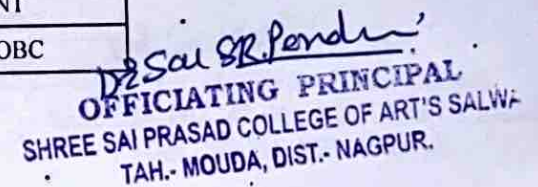 NT
OBC
OFFICIATING PRINCIPAL
SHREE SAI PRASAD COLLEGE OF ART'S SALWA
TAH.- MOUDA, DIST.- NAGPUR.